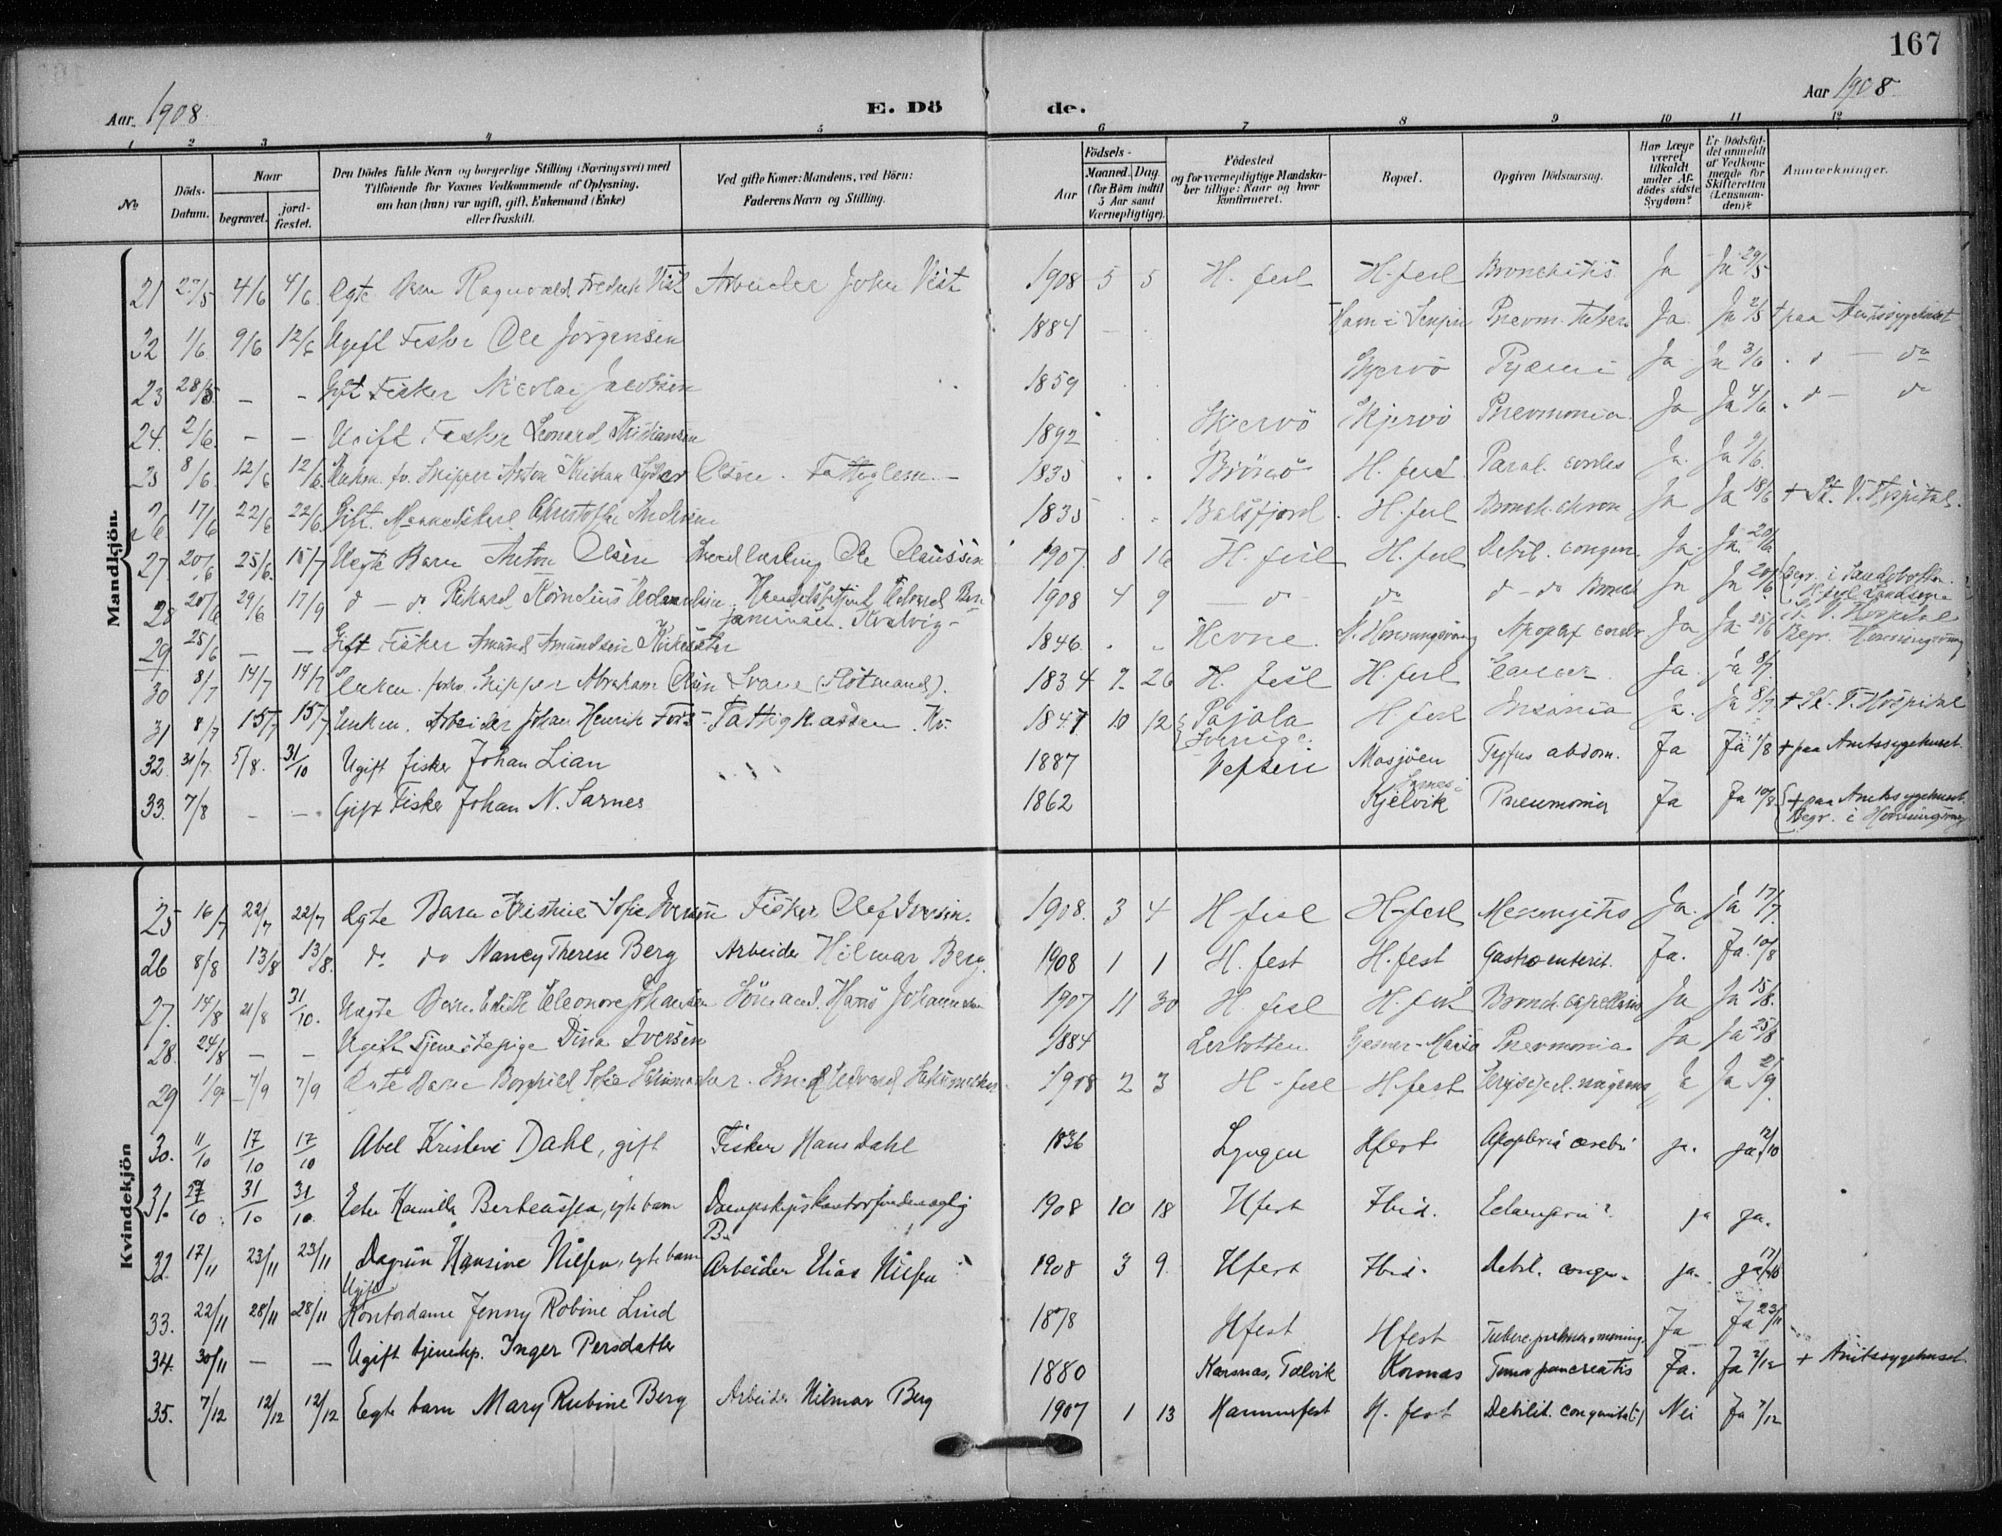 167
Aar. 1908.
E. Dö de.
Aar 1908
1 2 3 4 5 6 7 8 9 10 11 12
No
Döds-Datum.
Naar
begravet.
jord-fæstet.
Den Dödes fulde Navn og borgerlige Stilling (Næringsvei) med
Tilföiende for Voxnes Vedkommende af Oplysning,
om han (hun) var ugift, gift, Enkemand (Enke)
eller fraskilt.
Ved gifte Koner: Mandens, ved Börn:
Faderens Navn og Stilling.
Födsels-
Aar
Maaned. Dag.
(for Börn indtil
5 Aar samt
Værnepligtige).
Födested
og for værnepligtige Mandskaber tillige: Naar og hvor
konfirmeret.
Bopæl.
Opgiven Dödsaarsag.
Har Læge
været
tilkaldt
under Afdödes sidste
Sygdom?
Er Dödsfaldet anmeldt
af Vedkommende for
Skifteretten
(Lensmanden)?
Anmærkninger.
Mandkjön.
21 27/5 4/6 4/6 Ægte Barn Ragnvald Fredrik Vist Arbeider John Vist 1908 5 5 H. fest H. fest Bronchitis Ja Ja 29/5
32 1/6 9/6 12/6 Ugift Fisker Ole Jörgensen 1884 Ja Ja + paa Amtssygehuset
23 28/5 — - Gift Fisker Nicolai Jacobsen 1859 Skjervö Pyæmi Ja Ja 3/6 do
24. 2/6 — — Ugift Fisker Leonard Kristiansen 1892 Skjervö Skjervö Pnevmonia Ja Ja 4/6 do
25 8/6 12/6 12/6 Enkem. fv. Skipper Anton Kristian Olsen. Fattiglem. 1835 H. fest Paral. cordis Ja Ja 9/6
26 17/6 22/6 22/6 Gift. 1835 Balsfjord H. fest Bronch. chron Ja Ja 18/6 + St. V. Hospital.
27 20/6 25/6 15/7 Uegte Barn Anton Olsen Ole Claussen 1907 8 16 H. fest H. fest Debil. congen. Ja. Ja. 20/6
28 20/6 29/6 17/9 d — do Rikard Kornelius Edvard Benjaminsen. Kvalvig 1908 4 9 — do do d - do Bronch Ja Ja 20/6 Begr. i
29. 25/6 — — Gift Fisker Amund Amundsen 1846. Hevne Honningsvaag Apoplex cerebr. Ja Ja 25/6 V. Hospital Begr. Honningsvaag
30 8/7 14/7 14/7 Enkem. forhv. Skipper Abraham Olsen Svane 1834 7 26 H. fest H. fest Cancer Ja. ja 8/7
31 8/7 15/7 15/7 Enkem. Arbeider Johan Henrik Fors Fattigkassen. 1847 10 12 Pajala Sverige H fest Insania Ja. Ja 8/7 + St. V. Hospital
32. 31/7 5/8. 31/10 Ugift fisker Johan Lian 1887 Vefsen Mosjöen Tyfus abdom. Ja Ja 1/8 + paa Amtssygehuset.
33. 7/8 — — Gift Fisker Johan N. Sarnes 1862 Sarnes i Kjelvik Pneumonia Ja Ja 10/8 + paa Amtssygehuset. Begr. i Honningsvaag
Kvindekjön
25 16/7 22/7 22/7 Ægte Barn Kristine Sofie Iversen Fisker Olef Iversen. 1908. 3 4 H fest H-fest Meningitis Ja. Ja 17/7
26 8/8 13/8 13/8. do do Nancy Therese Berg Arbeider Hilmar Berg. 1908 1 1 H. fest H. fest Gastroenterit. Ja. Ja 10/8
27. 14/8 21/8 31/10. Uægte Barn Edith Eleonore Johansen Sömand. Hans Johannesen 1907 11 30 H. fest H. fest Bronch. capillaris Ja Ja 15/8.
28. 24/8 — — Ugift Tjenestepige Dina Iversen 1884 Lerbotten Pnevmonia Ja Ja 25/8
29 1/9 7/9 7/9 Ægte Barn Borghild Sofie Smed Edvard 1908 2 3 H-fest H-fest Ja Ja 2/9.
30. 11/10 17/10 17/10 Abel Kristine Dahl, gift Fisker Hans Dahl 1836 Lyngen Hfest Apoplexia cerebri ja. ja. 12/10
31. 27/10 31/10 31/10. Ester Kamilla Berteussen, egte barn Dampskibskontorfuldmægtig B. 1908 10 18 Hfest Ibid. Eclampsia? ja ja.
32. 17/11 23/11 23/11 Dagrun Hansine Nilsen, egte barn Arbeider Elias Nilsen 1908 3 9. Hfest Ibid. Debil. congen. ja. ja.
33. 22/11 28/11 28/11 Ugift Kontordame Jenny Robine Lund 1878 Hfest Hfest Ja Ja 23/11
34. 30/11 — — Ugift tjenestep. Inger Persdatter 1880 Korsnæs, Talvik Korsnæs Tumor pancreatis Ja. Ja 2/12 + Amtssygehuset.
35. 7/12 12/12 12/12 Egte barn Mary Rubine Berg Arbeider Hilmar Berg 1907 1 13 Hammerfest H. fest Debilit. congenita(?) Nei Ja 7/12